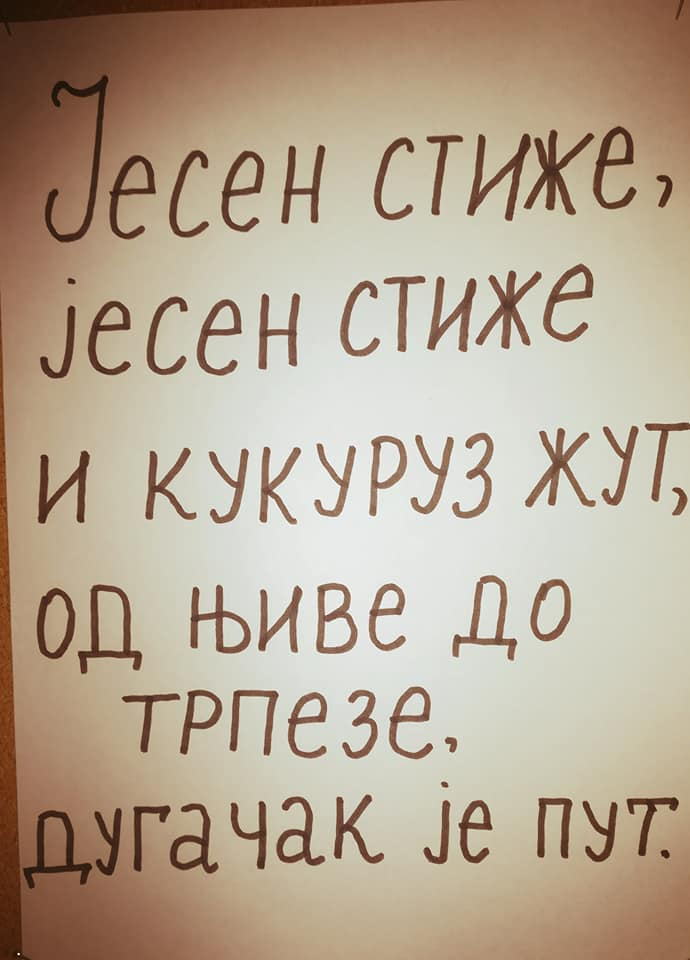 Јесен стиже,
јесен стиже
и кукуруз жут,
од њиве до
трпезе,
дугачак је пут.